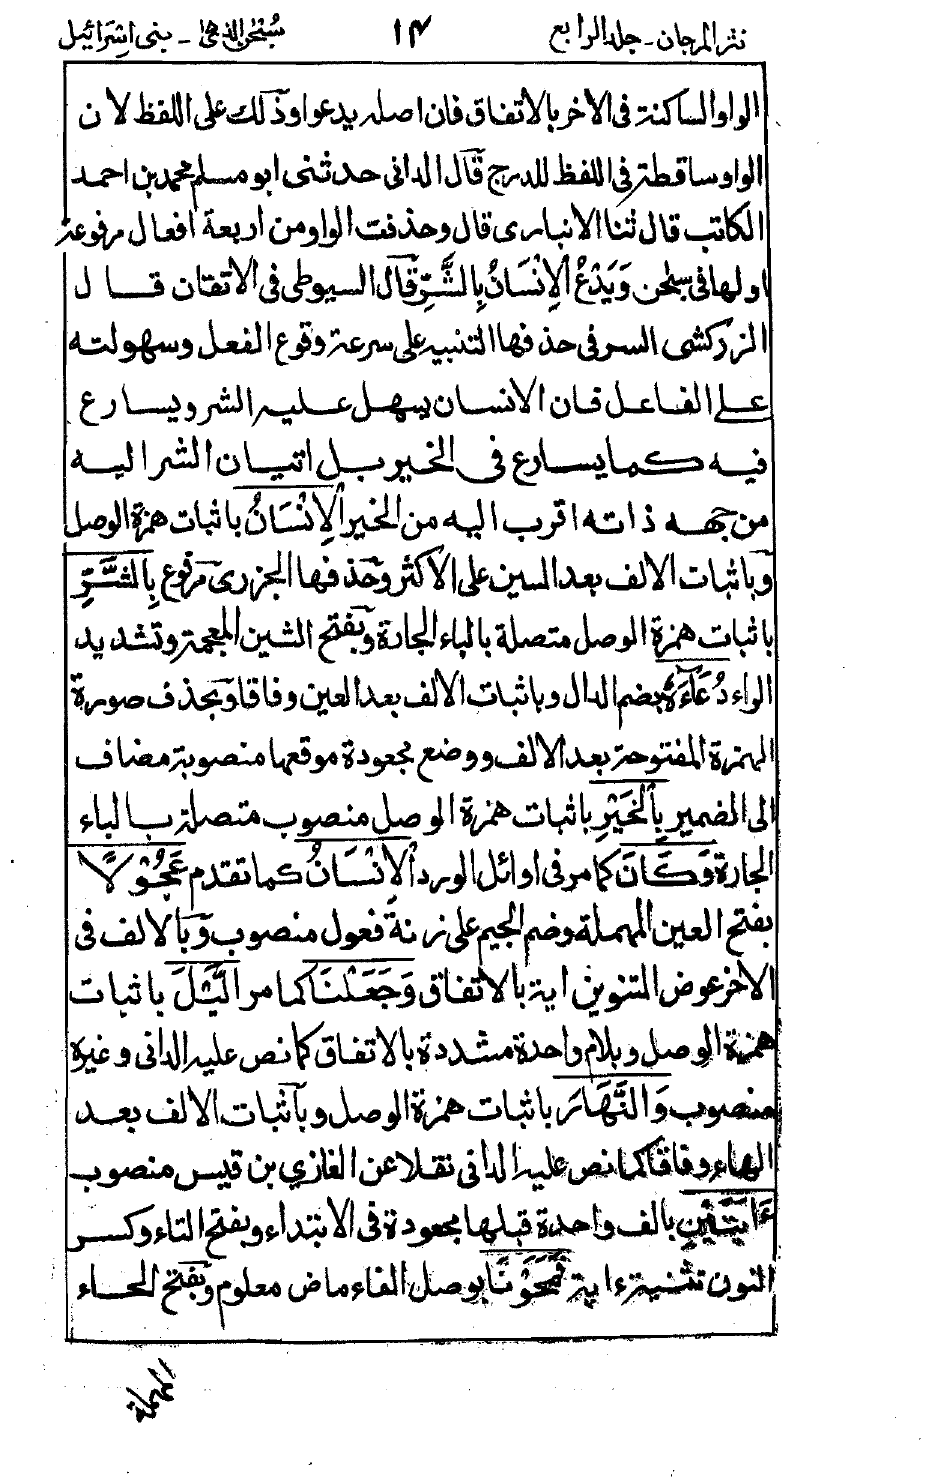 نثر المرجان - جلد الرابع ١٤ سُبْحٰنَ الذی - بنی اسرائیل
الواو الساكنة فى الاخر بالاتفاق فان اصله يدعوا وذلك على اللفظ لان
الواو ساقطة فى اللفظ للدرج قال الدانى حدثنى ابو مسلم محمد بن احمد
الكاتب قال ثنا الانبارى قال وحذفت الواو من اربعة افعال مرفوعة
اولها فى سبحٰن وَيَدْعُ الْاِنْسَانُ بِالشَّرِّ قال السيوطى فى الاتقان قال
الزركشى السر فى حذفها التنبيه على سرعة وقوع الفعل وسهولته
على الفاعل فان الانسان يسهل عليه الشر ويسارع
فيه كما يسارع فى الخير بل اتيان الشر اليه
من جهه ذاته اقرب اليه من الخير الْاِنْسَانُ باثبات همزة الوصل
وباثبات الالف بعد السين على الاكثر وحذفها الجزرى مرفوع بِالشَّرِّ
باثبات همزة الوصل متصلة بالباء الجارة وبفتح الشين المعجمة وتشديد
الراء دُعَآءَهٗ بضم الدال وباثبات الالف بعد العين وفاقا وبحذف صورة
الهمزة المفتوحة بعد الالف ووضع مجعودة موقعها منصوبة مضاف
الى الضمير بِالْخَيْرِ باثبات همزة الوصل منصوب متصلة بالباء
الجارة وَكَانَ كما مر فى اوائل الورد الْاِنْسَانُ كما تقدم عَجُوْلًا
بفتح العين المهملة وضم الجيم على زنة فعول منصوب وبالالف فى
الاخر عوض التنوين اية بالاتفاق وَجَعَلْنَا كما مر الَّيْلَ باثبات
همزة الوصل وبلام واحدة مشددة بالاتفاق كما نص عليه الدانى وغيره
منصوب وَالنَّهَارَ باثبات همزة الوصل وباثبات الالف بعد
الهاء وفاقا كما نص عليه الدانى نقلا عن الغازي بن قيس منصوب
ءَايَتَيْنِ بالف واحدة قبلها مجعودة فى الابتداء وبفتح التاء وكسر
النون تثنية ءاية فَمَحَوْنَا بوصل الفاء ماض معلوم وبفتح الحاء
المهملة